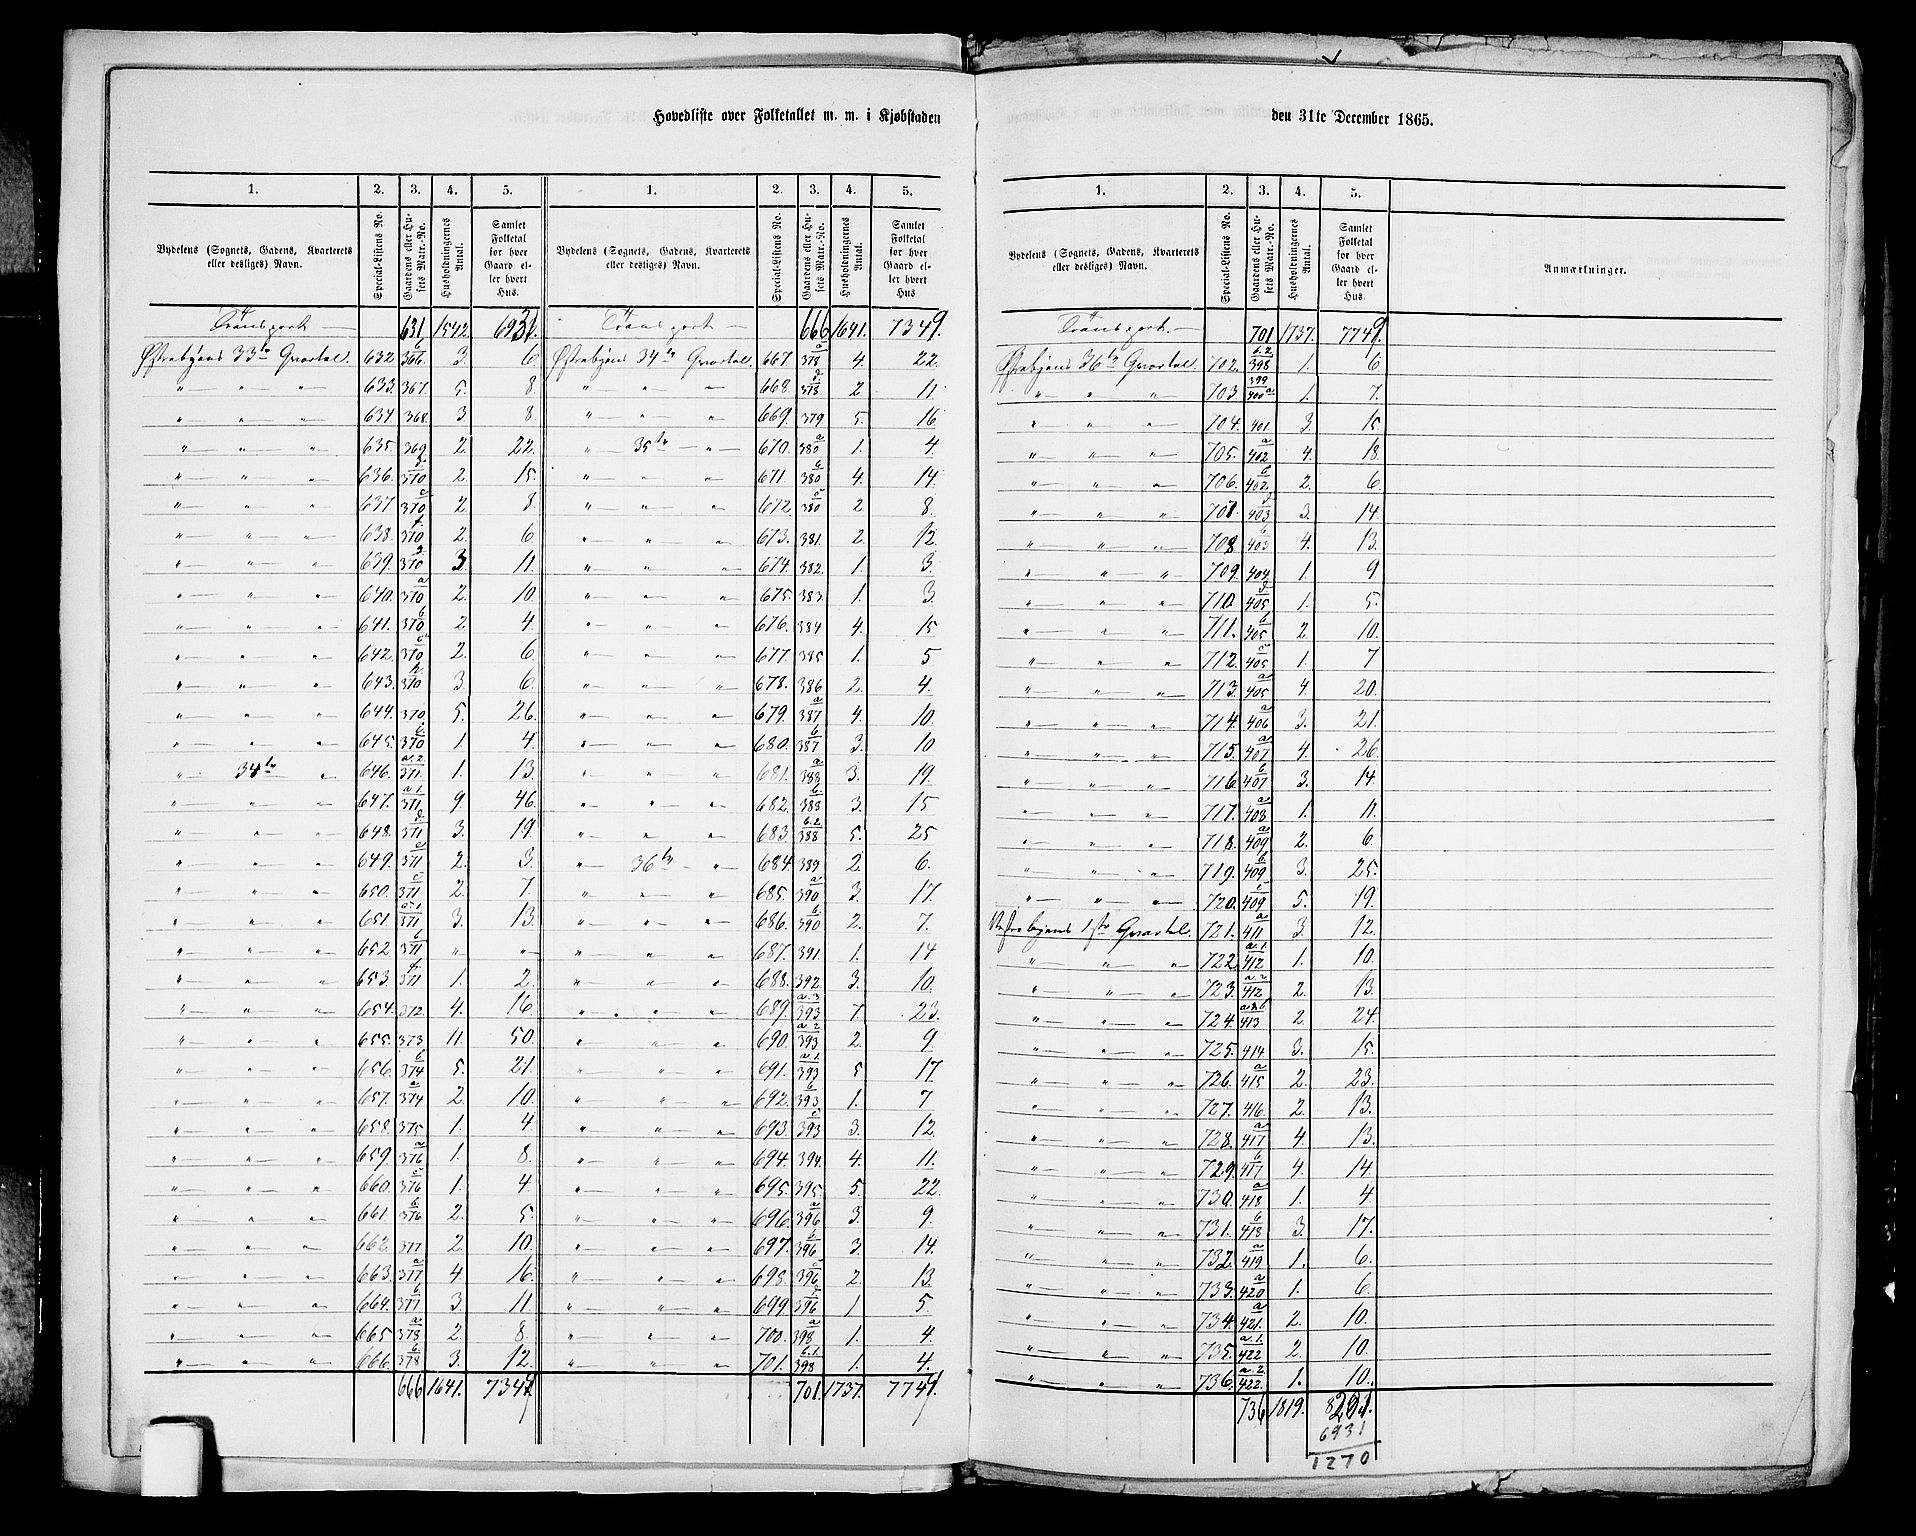 Hovedliste over Folketallet m. m. i Kjøbstaden
den 31te December 1865.
1. 2. 3. 4. 5. 1. 2. 3. 4. 5.
Bydelens (Sognets, Gadens, Kvarterets eller desliges) Navn. Special-Listens No. Gaardens eller Husets Matr.-No. Husholdningernes Antal. Samlet Folketal for hver Gaard eller hvert Hus.
Bydelens (Sognets, Gadens, Kvarterets eller desliges) Navn. Special-Listens No. Gaardens eller Husets Matr.-No. Husholdningernes Antal. Samlet Folketal for hver Gaard eller hvert Hus
Transport — 631 1542. Transport — 666 1641. 7349.
Østrebyens 33te Qvartal. 632. 366 b 3. 6. Østrebyens 34te Qvartal. 667. 378 4. 22.
" " " 633. 367. 5. 8. " " " 668. 378 d 2 11.
" " " 634. 368. 3. 8. " " " 669. 379 5. 16.
" " " 635. 369 2. 22. " 35te " 670. 380 a 1. 4.
" " " 636. 370 d 2. 15. " " " 671. 380 b 4. 14.
" " " 637 370 2. 8. " " " 672. 380 c 2 8.
" " " 638. 370 f 2. 6 " " " 673. 381. 2. 12.
" " " 639. 370 g 3. 11. " " " 674. 382. 1. 3.
" " " 640. 370 a 2. 10 " " " 675. 383. 1. 3.
" " " 641. 370 b 2. 4 " " " 676. 384 4. 15
" " " 642. 370 c 2. 6. " " " 677. 385 1. 5
" " " 643. 370 h 3. 6. " " " 678. 386 2. 4.
" " " 644. 370. 5. 26. " " " 679. 387 a 4. 10.
" " " 645. 370 1. 4. " " " 680. 387 b 3. 10
" 34te " 646. 371. a.2 1. 13. " " " 681. 388 a 3. 19.
" " " 647. 371 a.1 9. 46. " " " 682. 388 b 3. 15
" " " 648. 371 d 3. 19. " " " 683 388 b.2 5. 25
" " " 649. 371 2. 3. " 36te " 684. 389 2. 6.
" " " 650. 371 c 2. 7. " " " 685. 390 a 3. 17.
" " " 651. 371 3. 13. " " " 686. 390 b 2. 7.
" " " 652 371 b " " " " " 687. 391 1. 14
" " " 653. 371 1. 2. " " " 688. 392 3. 10.
" " " 654. 372. 4. 16 " " " 689. 393 a.3 7. 23.
" " " 655. 373 11. 50. " " " 690. 393 a.2 2. 9
" " " 656. 374 b 5. 21. " " " 691. 393 a.1 5 17
" " " 657. 374 a 2. 10. " " " 692. 393 b 1. 7
" " " 658. 375 1. 4 " " " 693. 393 c 3. 12.
" " " 659 376 a 1. 8. " " " 694. 394. 4. 11.
" " " 660. 376 c 1. 4 " " " 695. 395. 5. 22.
" " " 661. 376 b 2. 5. " " " 696. 396 a 3. 9.
" " " 662. 377. 2. 10. " " " 697. 396 b 3. 14.
" " " 663. 377 a 4. 16. " " " 698. 396 c 2. 13.
" " " 664. 377 b 3. 11. " " " 699. 396 d 1 5.
" " " 665 378 a 2. 8. " " " 700. 398 a 1. 4
" " " 666. 378 b 3. 12. " " " 701. 398 b.1 1. 4.
666 1641. 7349 701. 1737. 7749.
1. 2. 3. 4. 5.
Bydelens (Sognets, Gadens, Kvarterets eller desliges) Navn. Special-Listens No. Gaardens eller Husets Matr.-No. Husholdningernes Antal. Samlet Folketal for hver Gaard eller hvert Hus. Anmærkninger.
Transport. — 701 1737. 7749.
Østrebyens 36te Qvartal. 702. 398 b.2 1. 6
" " " 703 399 400 a 1. 7.
" " " 704. 401. 3. 15
" " " 705. 402 a 4. 18.
" " " 706. 402. b 2. 6.
" " " 707. 403 3. 14.
" " " 708 403 b 4. 13.
" " " 709. 404. 1. 9
" " " 710. 405 d 1. 5.
" " " 711. 405 b 2. 10.
" " " 712. 405 c 1. 7
" " " 713. 405 a 4. 20.
" " " 714. 406 a 3. 21.
" " " 715. 407 a 4. 26.
" " " 716. 407 b 3. 14
" " " 717. 408 a 1. 11.
" " " 718. 409 a 2. 6.
" " " 719. 409 b 3. 25.
" " " 720. 409 c 5. 19.
Vestrebyens 1ste Qvartal. 721. 411 a 3. 12.
" " " 722. 412 a.1. 1. 10.
" " " 723. 412 a.2 2. 13.
" " " 724. 413 a&b 2. 24.
" " " 725. 414 3. 15.
" " " 726. 415 a 2. 23.
" " " 727. 416. 2. 13.
" " " 728. 417 a 4. 13.
" " " 729. 417 b 4. 14
" " " 730. 418 a 1. 4.
" " " 731. 418 b 3. 17.
" " " 732. 419 a 1. 6.
" " " 733. 420 a 1. 6
" " " 734. 421. a 2. 10.
" " " 735. 422 a.1. 2. 10.
" " " 736. 422. a.2. 1. 10.
736 1819. 8201.
6931
1270